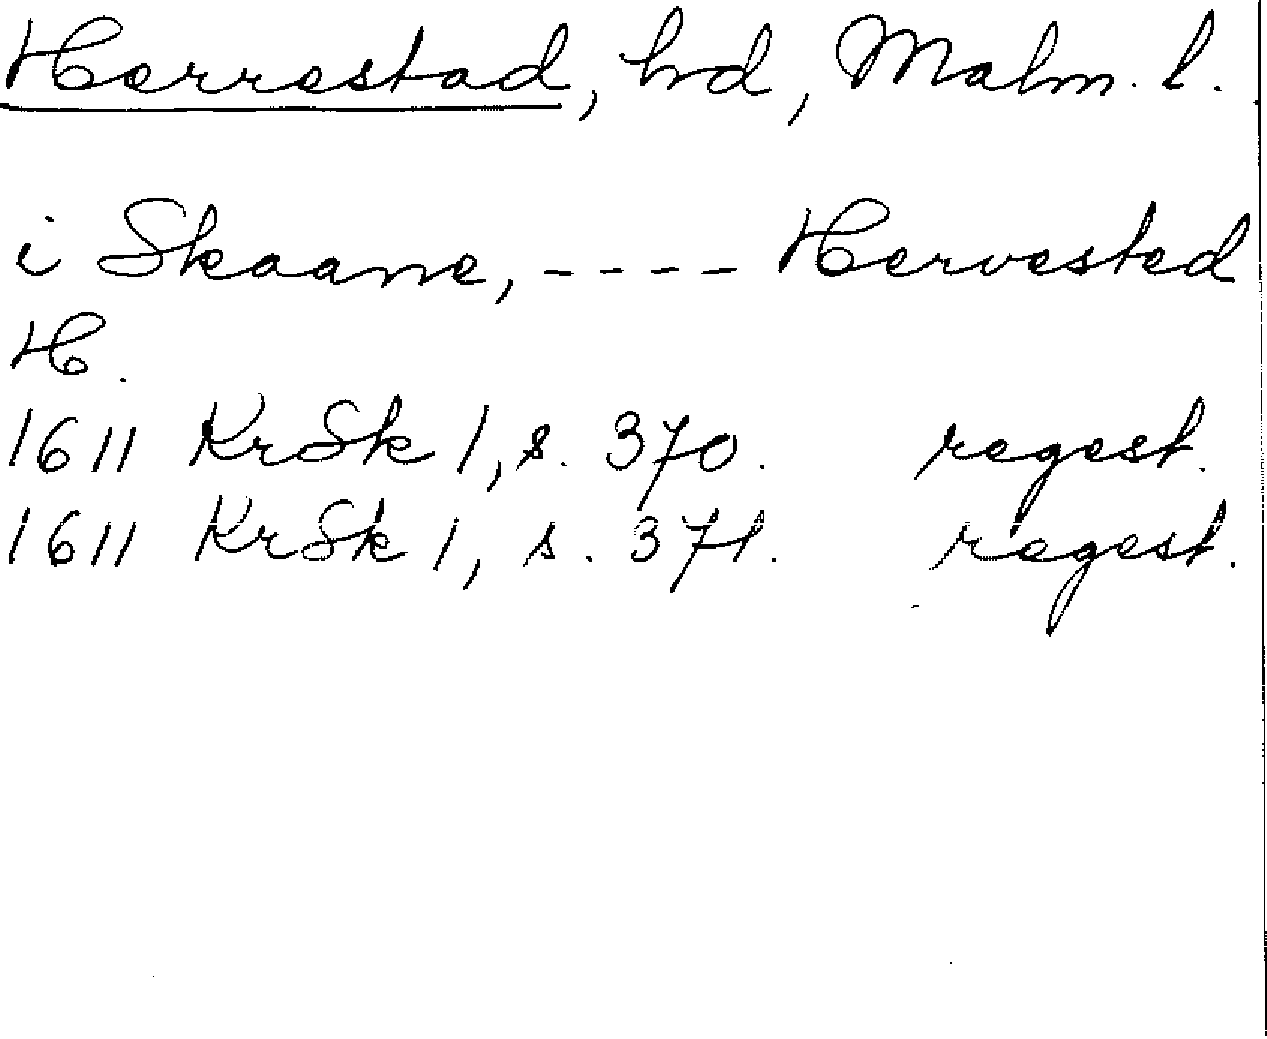 Herrestad, hd, Malm. l.
i Skaane, ---- Hervested
H.
1611 KrSk 1, s. 370. regest.
1611 KrSk 1, s. 371. regest.